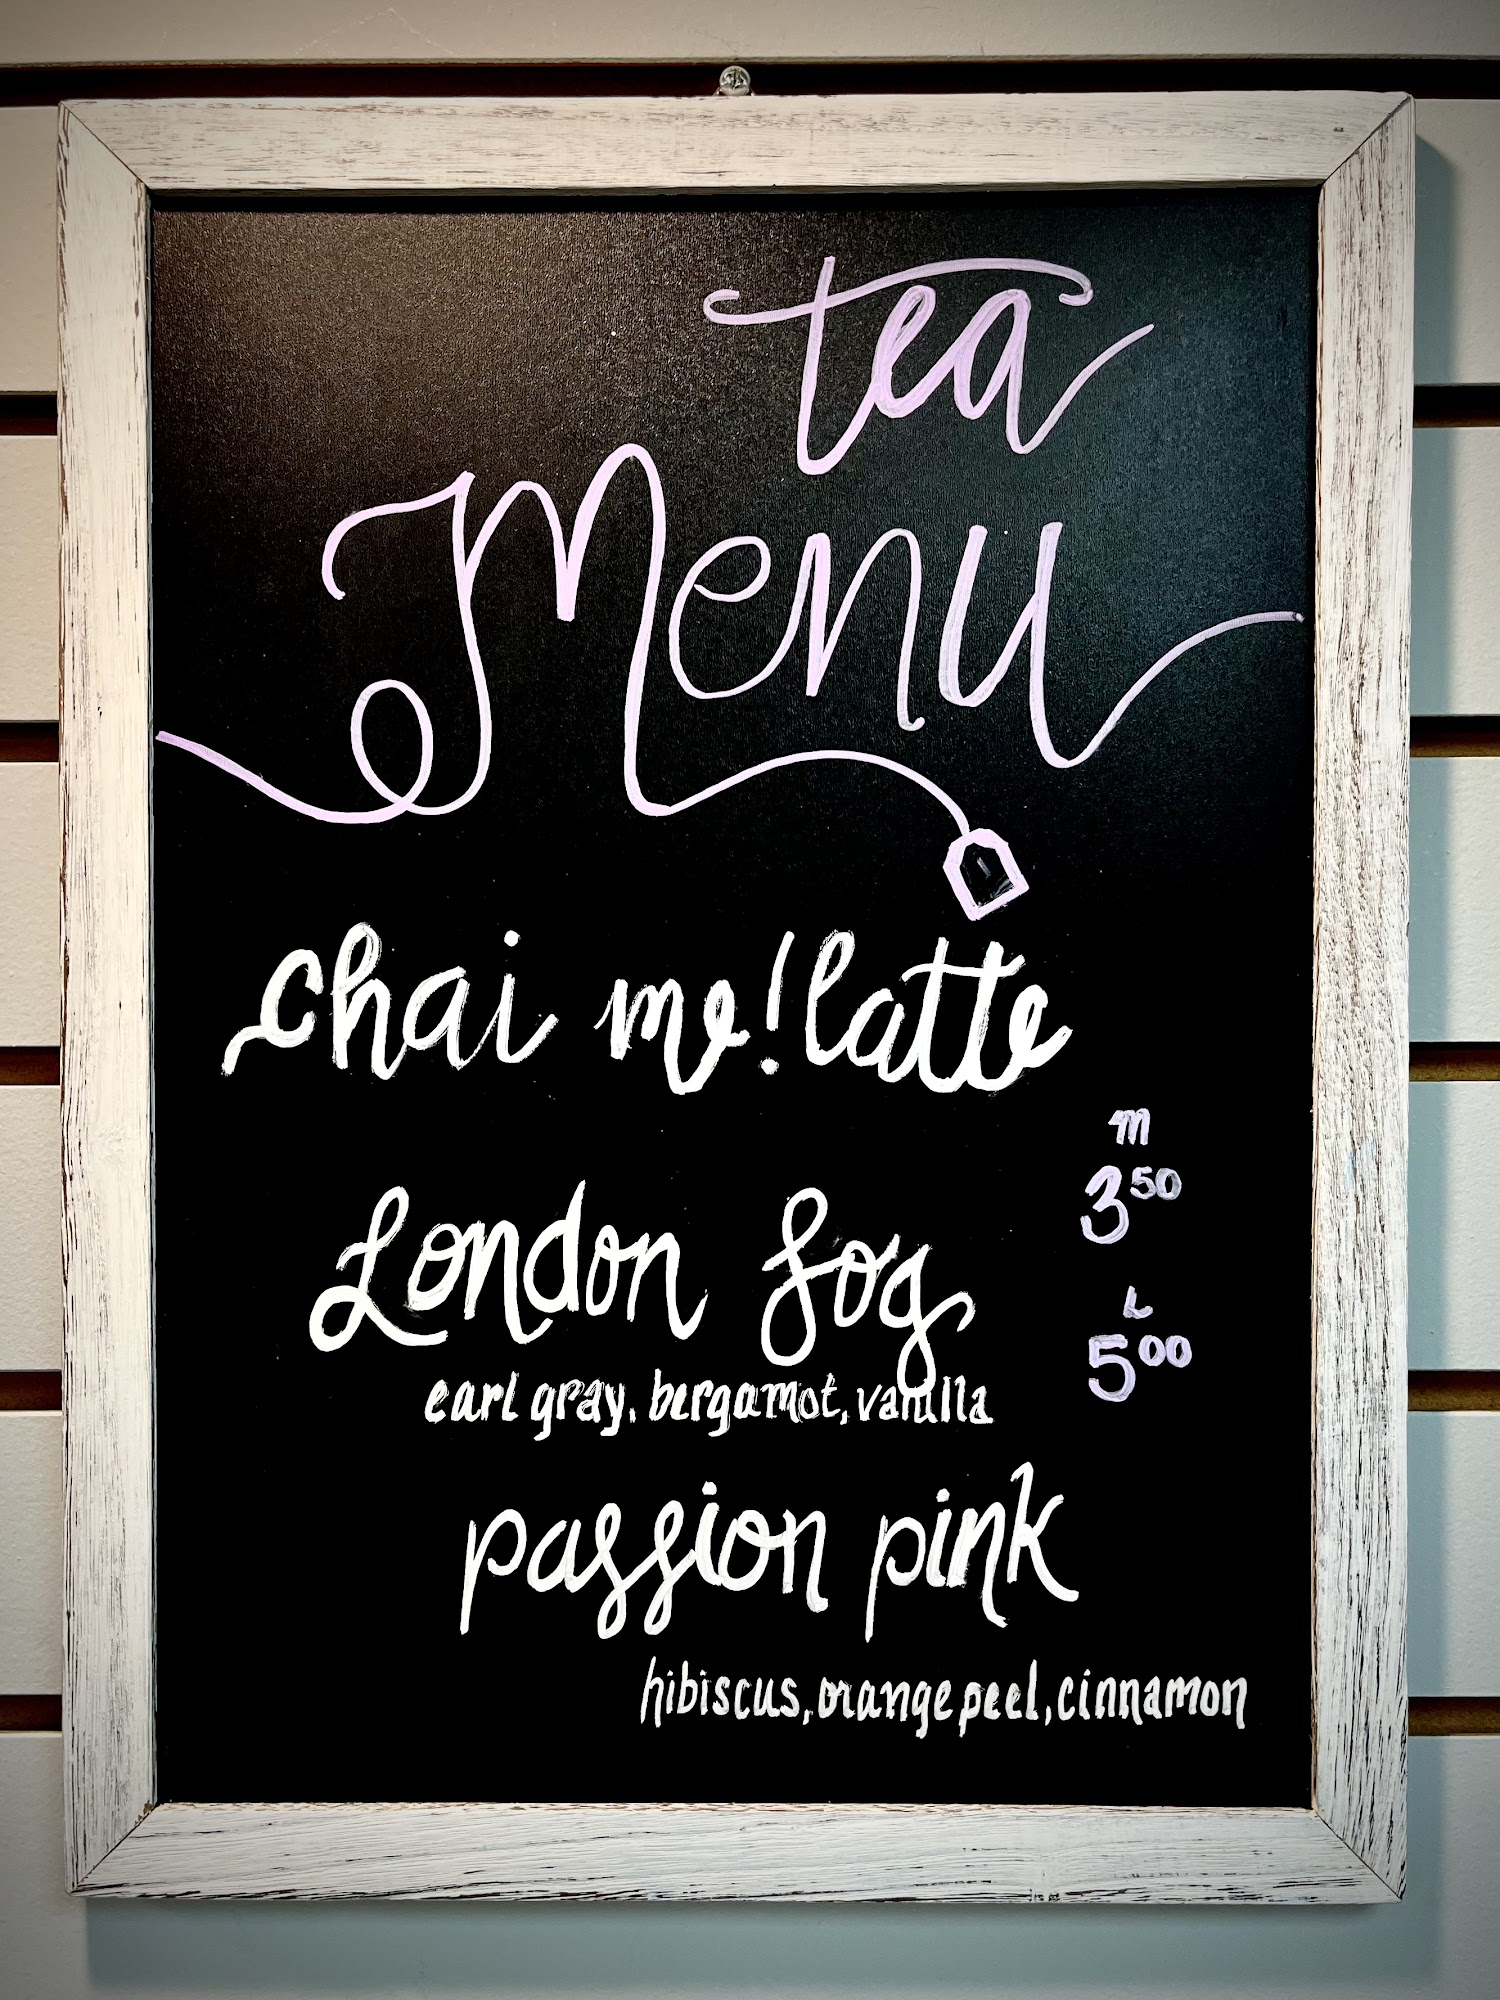 tea
Menu
chai me! latte
M
3.50
London fog
L
5.00
earl gray, bergamot, vanilla
passion pink
hibiscus, orange peel, cinnamon